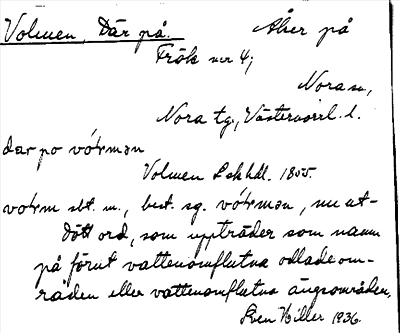 Volmen, Där på. Åker på
Fräk nr 4;
Nora sn,
Nora tg., Västernorrl. l.
dar po vótmən
Volmen Lskhdl. 1805.
votm sbt. m., best. sg. vótmən, nu ut-
dött ord, som uppträder som namn
på förut vattenomflutna odlade om-
råden eller vattenomflutna ängsområden.
Sven Hiller 1936.